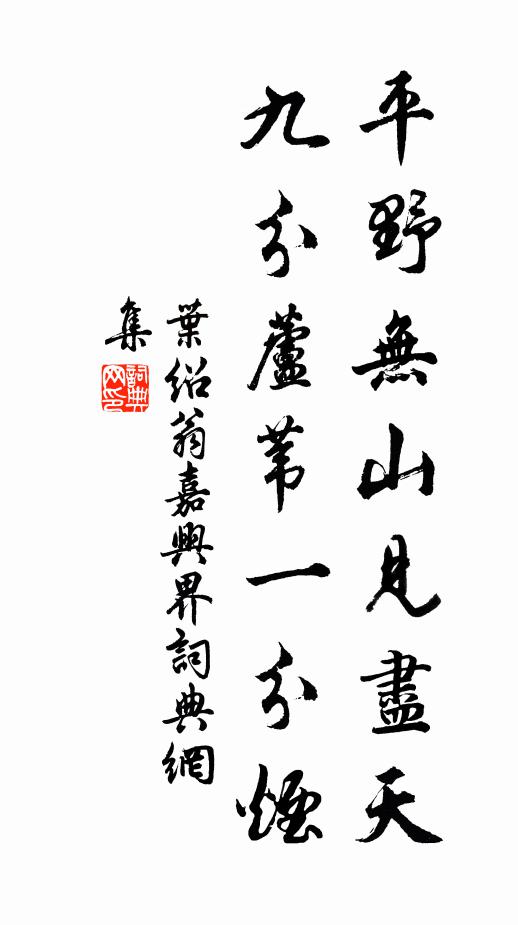 平野無山見盡天
九分蘆葦一分煙
葉紹翁嘉興界詞典網
集
詞典
网印